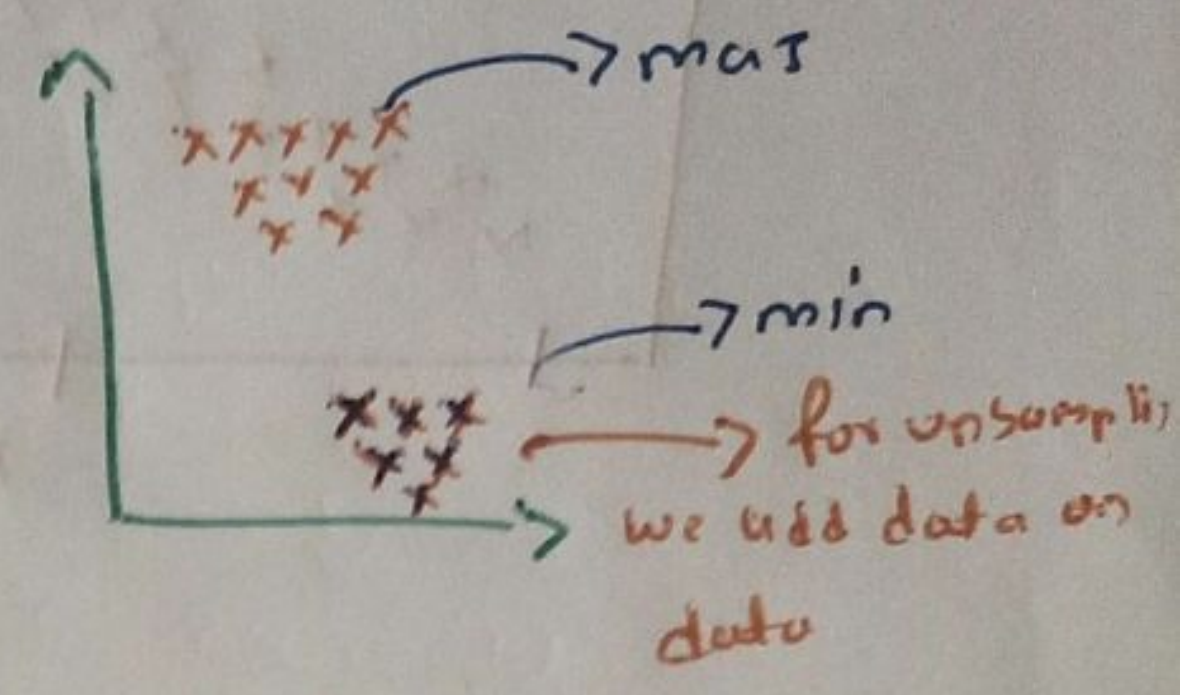 maj
min
for upsampli
we add data on
data